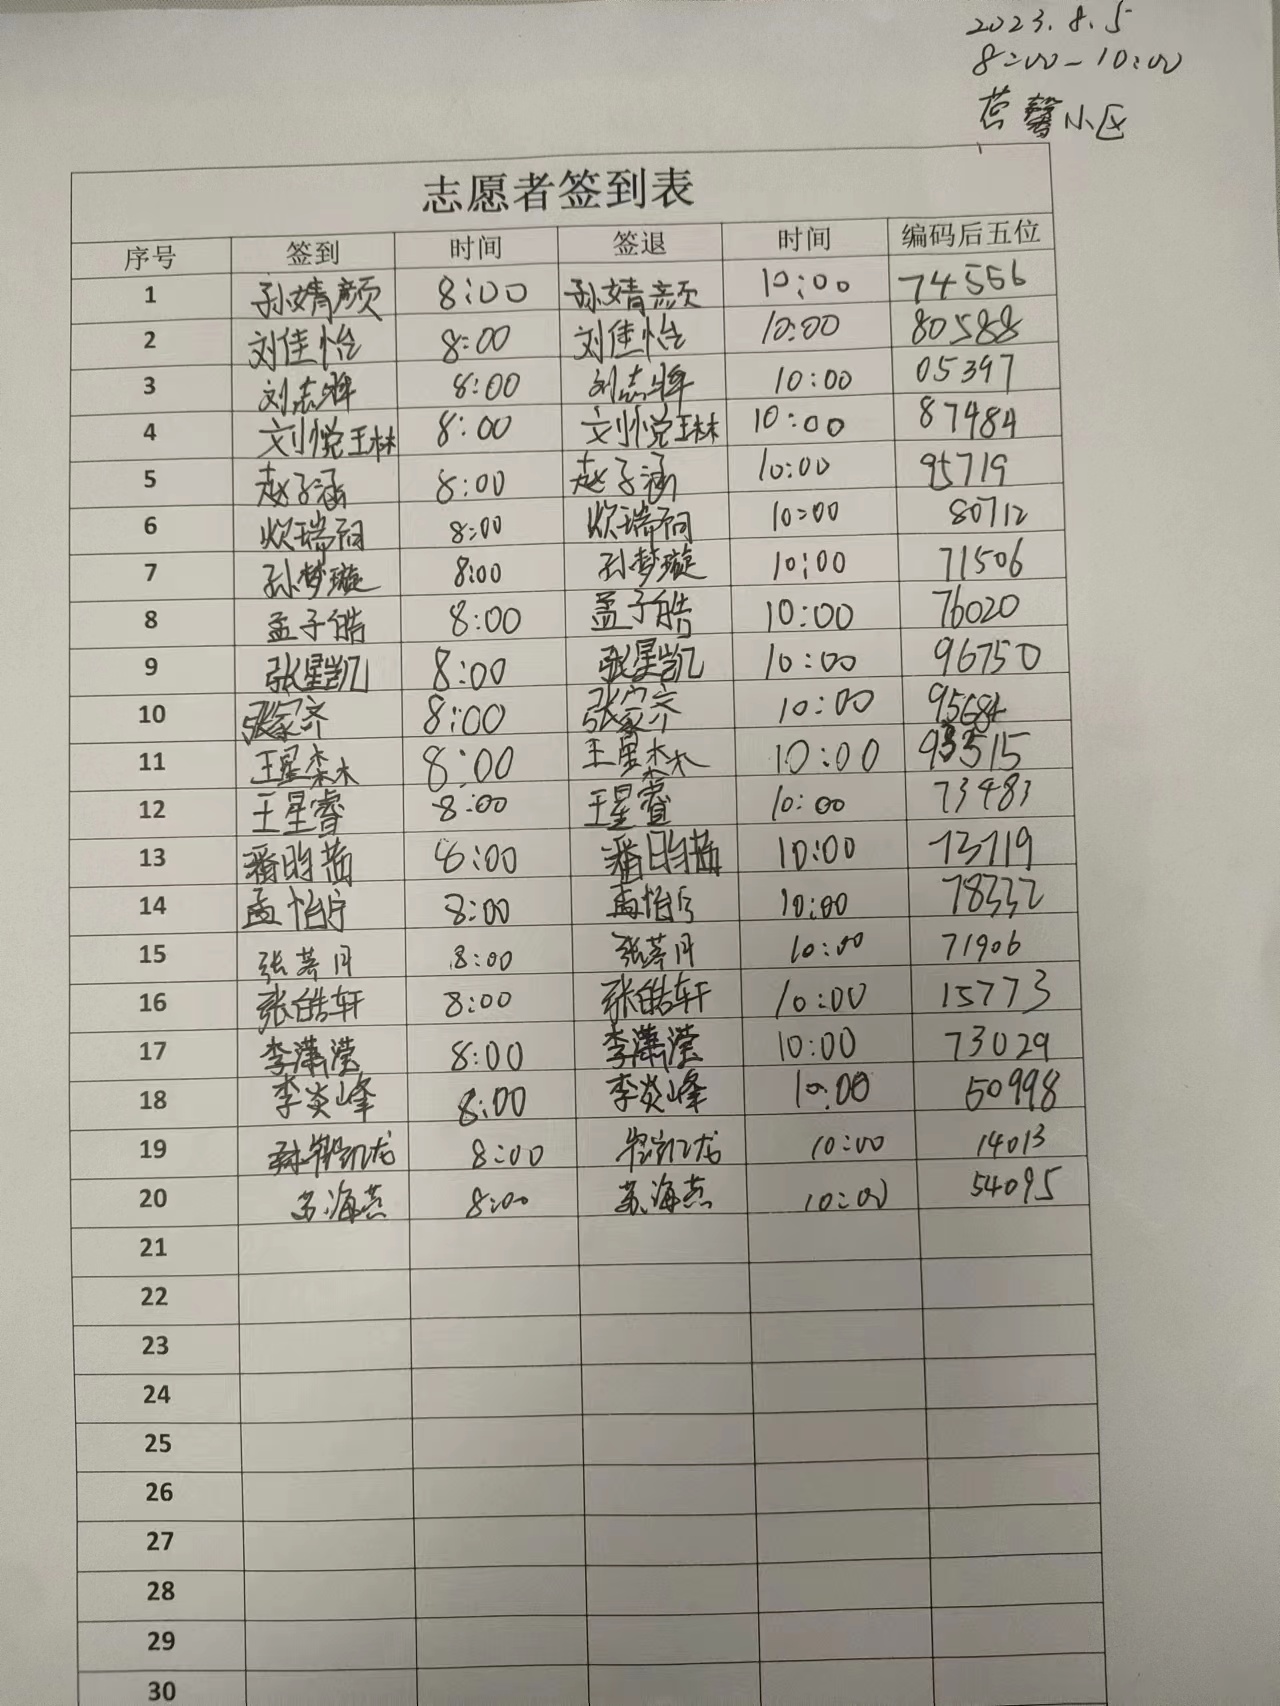 2023.8.5
8:00-10:00
茗馨小区
志愿者签到表
序号 签到 时间 签退 时间 编码后五位
1 孙婧颜 8:00 孙婧颜 10:00 74556
2 刘佳怡 8:00 刘佳怡 10:00 80588
3 刘志 8:00 刘志 10:00 05397
4 刘悦琳 8:00 刘悦琳 10:00 87484
5 赵子涵 8:00 赵子涵 10:00 95719
6 8:00 10:00 80712
7 孙梦璇 8:00 孙梦璇 10:00 71506
8 孟子皓 8:00 孟子皓 10:00 76020
9 张星凯 8:00 张星凯 10:00 96750
10 张家齐 8:00 张家齐 10:00 95684
11 王星 8:00 王星 10:00 93515
12 王星睿 8:00 王星睿 10:00 73483
13 潘昀茜 8:00 潘昀茜 10:00 73719
14 孟怡宁 8:00 孟怡宁 10:00 78332
15 张 月 8:00 张 月 10:00 71906
16 张皓轩 8:00 张皓轩 10:00 15773
17 李潇滢 8:00 李潇滢 10:00 73029
18 李炎峰 8:00 李炎峰 10:00 50998
19 凯龙 8:00 凯龙 10:00 14013
20 苏海燕 8:00 苏海燕 10:00 54095
21
22
23
24
25
26
27
28
29
30